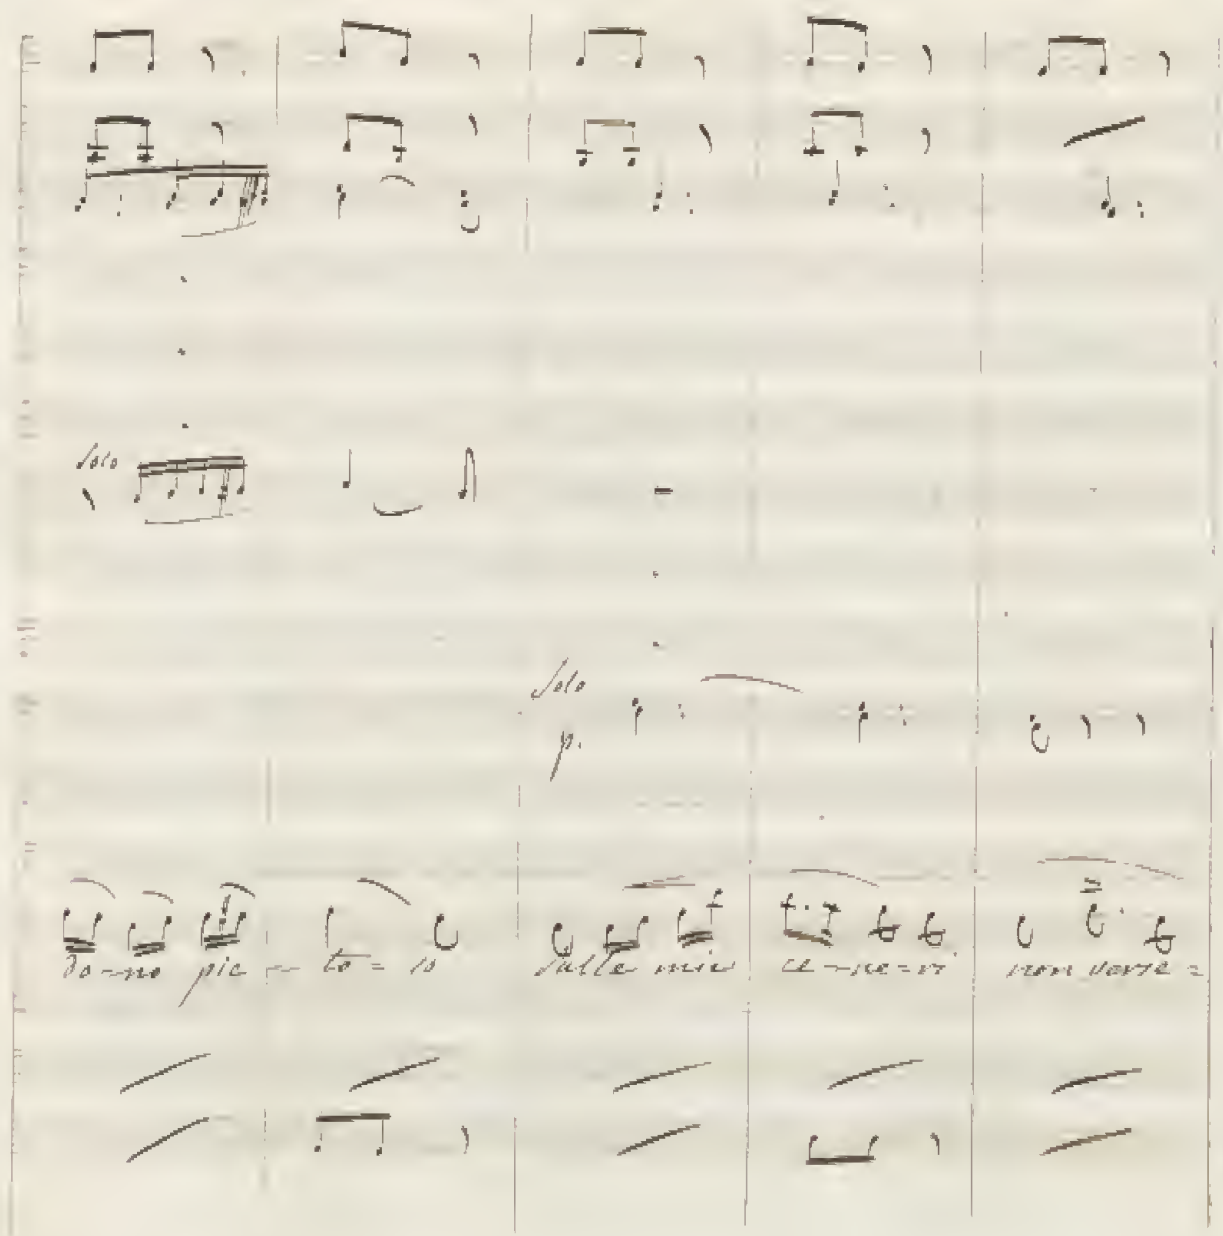 Solo
Solo
p.
do=no pie = to = so sulle mie ce=ne=ri non verse=